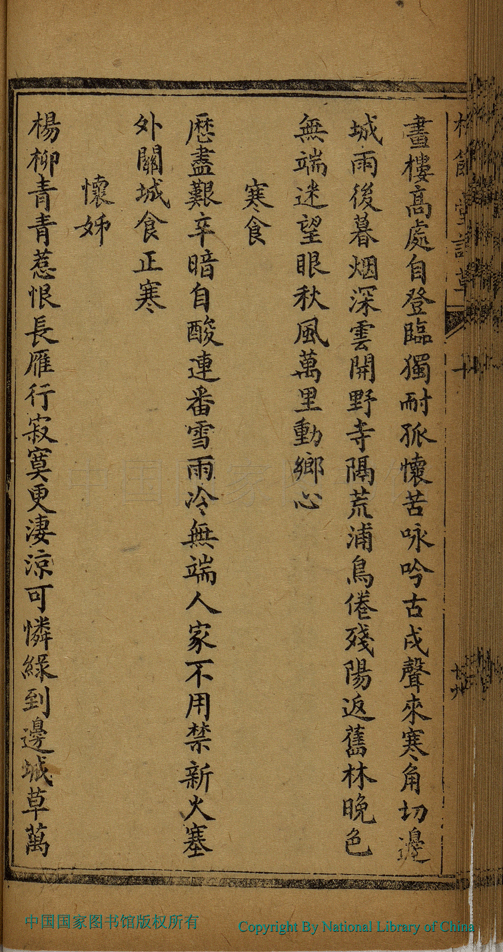 畫樓高處自登臨獨耐孤懷苦咏吟古戍聲來寒角切邊
城雨後暮烟深雲開野寺隔荒浦鳥倦殘陽返舊林晚色
無端迷望眼秋風萬里動鄉心
寒食
歷盡艱辛暗自酸連番雪雨冷無端人家不用禁新火塞
外關城食正寒
懷姊
楊柳青青惹恨長雁行寂寞更淒涼可憐綠到邊城草萬
中国国家图书馆版权所有
Copyright By National Library of China